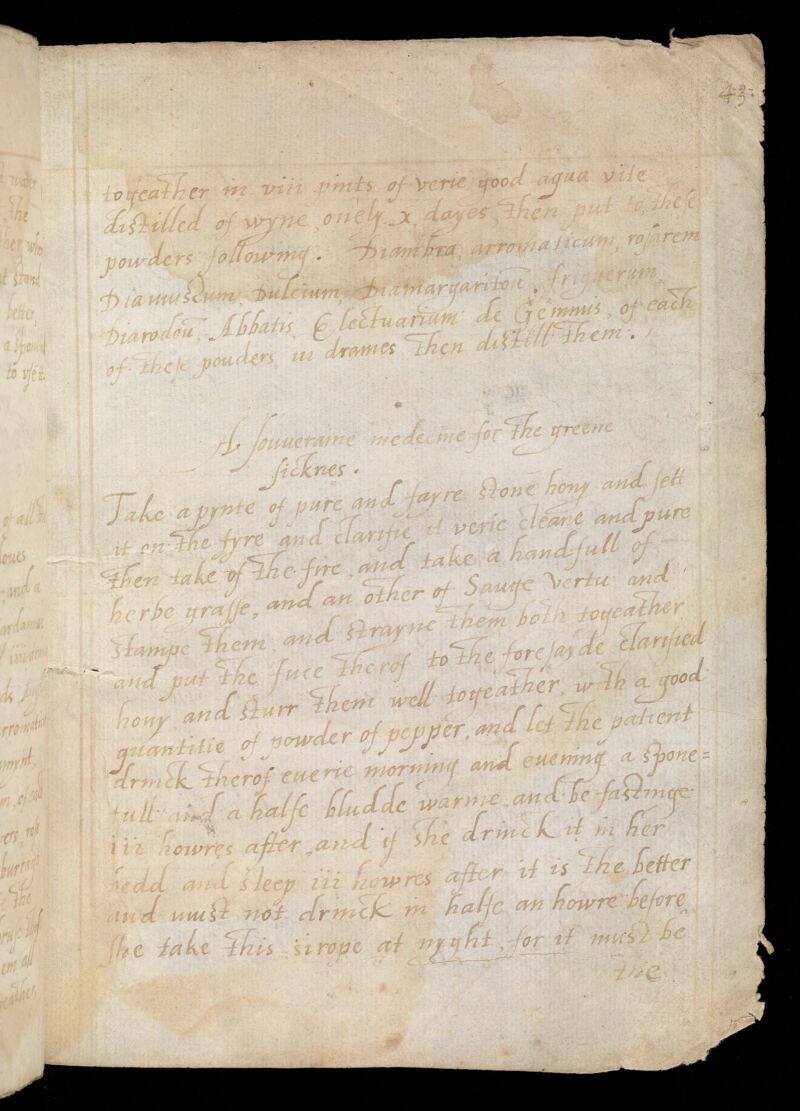 43.
togeather in viii pints of verie good aqua vite
distilled of wyne, onely x dayes, then put to these
powders following. Diambra, arromaticum, rosarem
Diamuscum Dulcium, Diamargariton, friguerum,
Diarodon, Abbatis, Electuarium de Gemmis, of each
of these pouders iii drames then distill them.
A souveraine medecine for the greene
sicknes.
Take a pynte of pure and fayre stone hony and sett
it on the fyre and clarifie it verie cleane and pure
then take of the fire, and take a handfull of
herbe grasse, and an other of Sauge Vertu and
stampe them, and strayne them both togeather
and put the Juce therof to the foresayde clarified
hony and sturr them well togeather, wth a good
quantitie of powder of pepper, and let the patient
drinck therof euerie morning and euening a spone=
full and a halfe bludde warme, and be fastinge
iii howres after, and if she drinck it in her
bedd and sleep iii howres after it is the better
and must not drinck in halfe an howre before
she take this sirope at nyght, for it must be
the